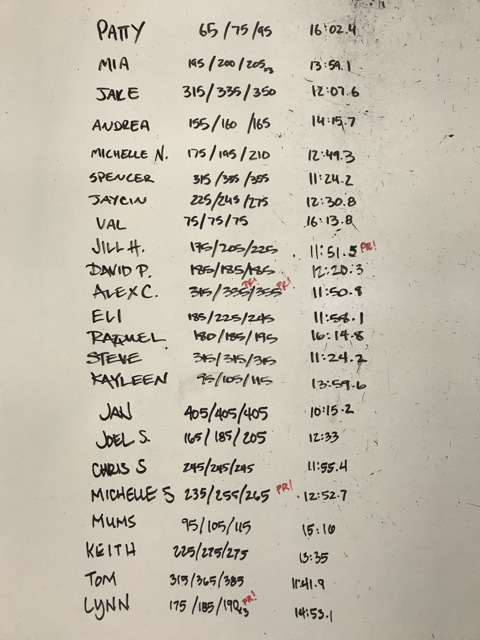 PATTY 65/75/95 16:02.4
MIA 195/200/205x3 13:59.1
JAKE 315/335/350 12:07.6
ANDREA 155/160/165 14:15.7
MICHELLE N. 175/195/210 12:49.3
SPENCER 315/335/355 11:24.2
JAYCIN 225/245/275 12:30.8
VAL 75/75/75 16:13.8
JILL H. 175/205/225 11:51.5 PR!
DAVID P. 185/185/185 12:20.3
ALEX C. 315/335/355 PR! PR! 11:50.8
ELI 185/225/245 11:58.1
RAQUEL 180/185/195 16:14.8
STEVE 315/315/315 11:24.2
KAYLEEN 95/105/115 13:59.6
JAN 405/405/405 10:15.2
JOEL S. 165/185/205 12:33
CHRIS S 245/245/245 11:55.4
MICHELLE S 235/255/265 PR! 12:52.7
MUMS 95/105/115 15:10
KEITH 225/275/275 13:35
TOM 315/365/385 11:41.9
LYNN 175/185/190x3 PR! 14:53.1